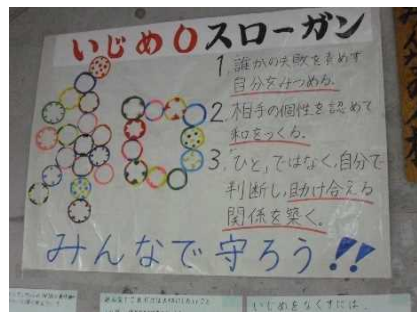 いじめ0スローガン
1. 誰かの失敗を責めず
自分をみつめる。
2. 相手の個性を認めて
和をつくる。
3. ひと,ではなく,自分で
判断し,助け合える
関係を築く。
みんなで守ろう!!
いじめをなくすには、